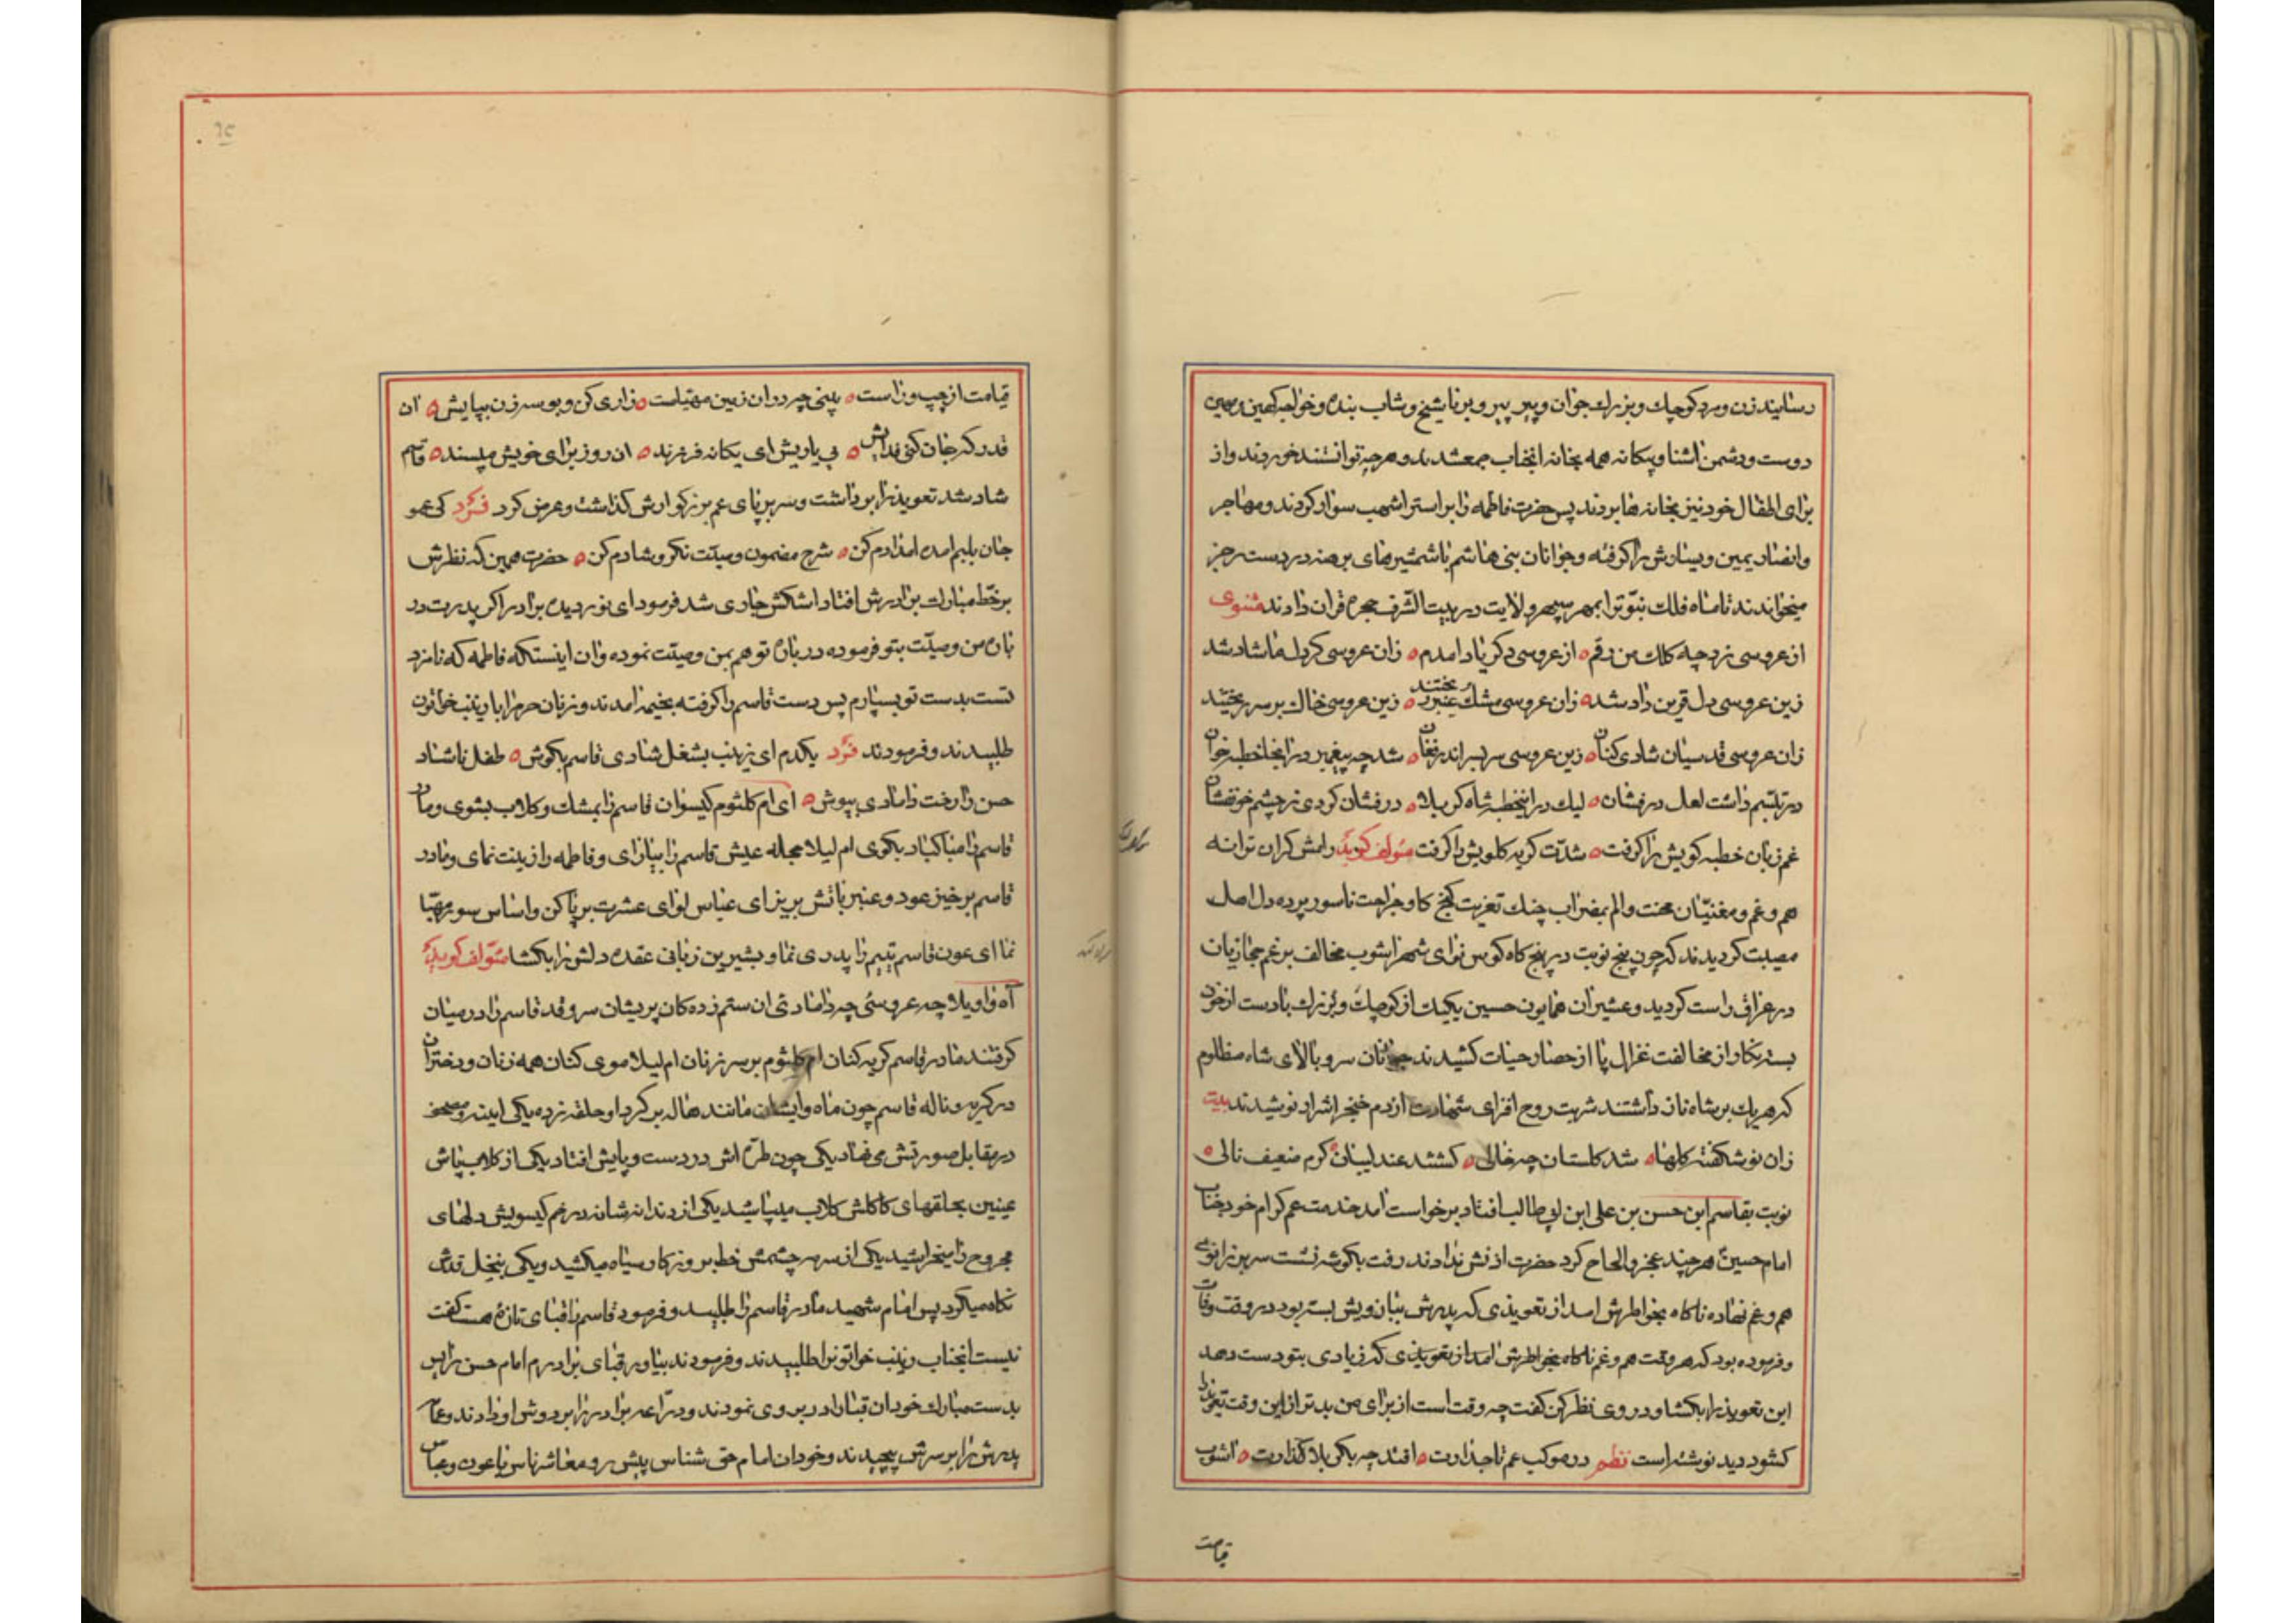 رسانیدند زن و مرد کوچک و بزرك جوان و پیر پیر و برنا شیخ و شاب بنده و خواجه کهین و مهین
دوست و دشمن اشنا و بیکانه همه بخانه انجناب جمع شدند و هر چه توانستند خوردند و از
برای اطفال خود نیز بخانه ها بردند پس حضرت فاطمه را بر استر اشهب سوار کردند و مهاجر
و انصار یمین و یسارش را کرفته و جوانان بنی هاشم با شمشیرهای برهنه در دست رجز
میخواندند تا ماه فلك نبوّت را بمهر سپهر ولایت در بیت الشرف حجره قران دادند مثنوی
از عروسی زد چه کلك من رقم ه از عروسی دکر یاد امدم ه زان عروسی کر دل ما شاد شد
زین عروسی دل قرین داد شد ه زان عروسی مشك عنبر بیختند ه زین عروسی خاك بر سر ریختند
زان عروسی قدسیان شادی کنان ه زین عروسی سر بسر اندر فغان ه شد چه پیغمبر در انجا خطبه خوان
در تبسّم داشت لعل درفشان ه لیك در این خطبه شاه کربلا ه درفشان کردی ز چشم خونفشان
غم زبان خطبه کویش را کرفت ه شدّت کریه کلویش را کرفت مؤلف کوید رامش کران ترانه
هم و غم و مغنیّان محنت و الم بمضراب چنك تعزیت کنج کاو جراحت ناسور پرده دل اهل
مصیبت کردیدند که چون پنج نوبت در پنج کاه کوس نوای شهر اشوب مخالف بر غم حجازیان
در عراق راست کردید و عشیران همایون حسین یکیك از کوچك و بزرك با دست از خون
بسته نکار از مخالفت غزال پا از حصار حیات کشیدند جوانان سرو بالای شاه مظلوم
که هر یك بر شاه ناز داشتند شربت روح افزای شهادت از دم خنجر اشرار نوشیدند بیت
زان نوشکفته کلها ه شد کلستان چه خالی ه کشتند عندلیبان ه کرم ضعیف نالی ه
نوبت بقاسم ابن حسن بن علی ابن ابی طالب افتاد برخواست امد خدمت عم کرام خود جناب
امام حسین هر چند عجز و الحاح کرد حضرت اذنش ندادند رفت بکوشه نشست سر بر زانوی
هم و غم نهاده ناکاه بخواطرش امد از تعویذی که پدرش ببازویش بسته بود در وقت وفات
و فرموده بود که هر وقت هم و غم ناکاه بخواطرش امد از تعویذی که زیادی بتو دست دهد
این تعویذ را بکشا و در وی نظر کن کفت چه وقت است از برای من بدتر از این وقت تعویذ را
کشود دید نوشته است نظم در موکب عم تاجدارت ه افتد چه بکربلا کذارت ه اشوب
قیامت
قیامت از چپ و راست ه بینی چه دران زمین مهیّاست ه زاری کن و بوسه زن بپایش ه ان
قدر که جان کنی فدایش ه بی یاریش ای یکانه فرزند ه ان روز برای خویش مپسند ه قاسم
شاد شد تعویذ را برداشت و سر بر پای عم بزرکوارش کذاشت و عرض کرد فرد کی عمو
جان بلبم امده امدادم کن ه شرح مضمون وصیّت نکر و شادم کن ه حضرت همین که نظرش
بر خطّ مبارك برادرش افتاد اشکش جاری شد فرمود ای نور دیده برادر اکر پدرت در
باره من وصیّت بتو فرموده در باره تو هم بمن وصیّت نموده و ان اینستکه فاطمه که نامزد
تست بدست تو بسپارم پس دست قاسم را کرفته بخیمه امدند و زنان حرم را با زینب خاتون
طلبیدند و فرمودند فرد یکدم ای زینب بشغل شادی قاسم بکوش ه طفل ناشاد
حسن را رخت دامادی بپوش ه ای ام کلثوم کیسوان قاسم را بمشك و کلاب بشوی و مادر
قاسم را مبارکباد بکوی ام لیلا حجله عیش قاسم را بیارای و فاطمه را زینت نمای و مادر
قاسم برخیز عود و عنبر باتش بریز ای عباس لوای عشرت بر پا کن و اساس سور مهیّا
نما ای عون قاسم یتیم را پدری نما و بشیرین زبانی عقده دلش را بکشا مؤلف کوید
آه واویلا چه عروسی چه دامادی ان ستم زده کان پریشان سرو قد قاسم را در میان
کرفتند مادر قاسم کریه کنان ام کلثوم بر سر زنان ام لیلا موی کنان همه زنان و دختران
در کریه و ناله قاسم چون ماه و ایشان مانند هاله بر کرد او حلقه زده یکی اینه و مصحف
در مقابل صورتش می نهاد یکی چون طرّه اش در دست و پایش افتاد یکی از کلاب پاش
عینین بحلقهای کاکلش کلاب میپاشید یکی از دندانه شانه در خم کیسویش دلهای
مجروح را میخراشید یکی از سرمه چشمش خط بر روزکار سیاه میکشید و یکی بنخل قدش
نکاه میکرد پس امام شهید مادر قاسم را طلبید و فرمود قاسم را قبای تازه هست کفت
نیست انجناب زینب خواتون را طلبیدند و فرمودند بیاور قبای برادرم امام حسن را پس
بدست مبارك خود ان قبا را در بر وی نمودند و درّاعه برادر را بر دوش او دادند و عمامه
پدرش را بر سرش پیچیدند و خود ان امام حق شناس پیش رو و معاشر ناس با عون و عباس